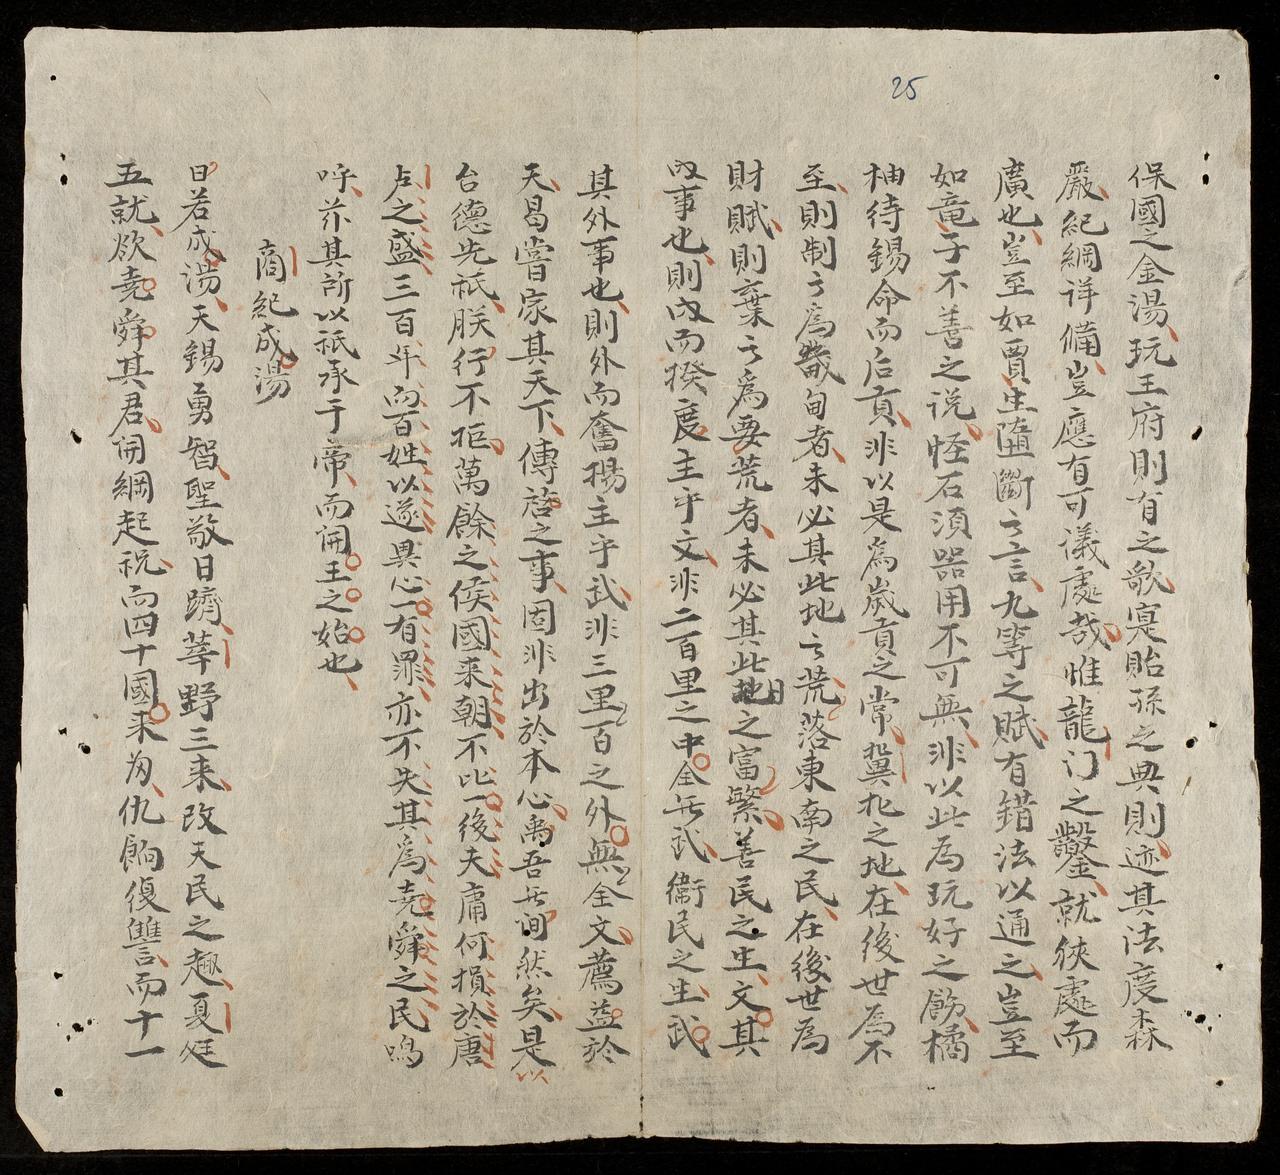 25
保國之金湯玩王府則有之歌寔貽孫之典則迹其法度森
嚴紀綱詳備豈應有可議處哉惟龍门之鑿就狹處而
廣也豈至如賈生隨斷之言九等之賦有錯法以通之豈至
如竜子不善之说怪石須器用不可無非以此為玩好之飾橘
柚待錫命而后貢非以是為歲貢之常冀北之地在後世為不
至則制之為畿甸者未必其此地之荒落東南之民在後世為
財賦則棄之為要荒者未必其此日之富繁善民之生文其
内事也則内而揆度主乎文非二百里之中全无武衛民之生武
其外事也則外而奮揚主乎武非三里百之外無全文薦益於
天曷嘗家其天下傳啓之事固非出於本心禹吾无间然矣是以
台德先祇朕行不拒萬餘之侯國来朝不比一後夫庸何損於唐
虞之盛三百年而百姓以遂異心一有罪亦不失其為堯舜之民嗚
呼茲其所以祇承于帝而開王之始也
商紀成湯
曰若成湯天錫勇智聖敬日躋莘野三来改天民之趣夏廷
五就欲堯舜其君開網起祝而四十國来为仇餉復讐而十一